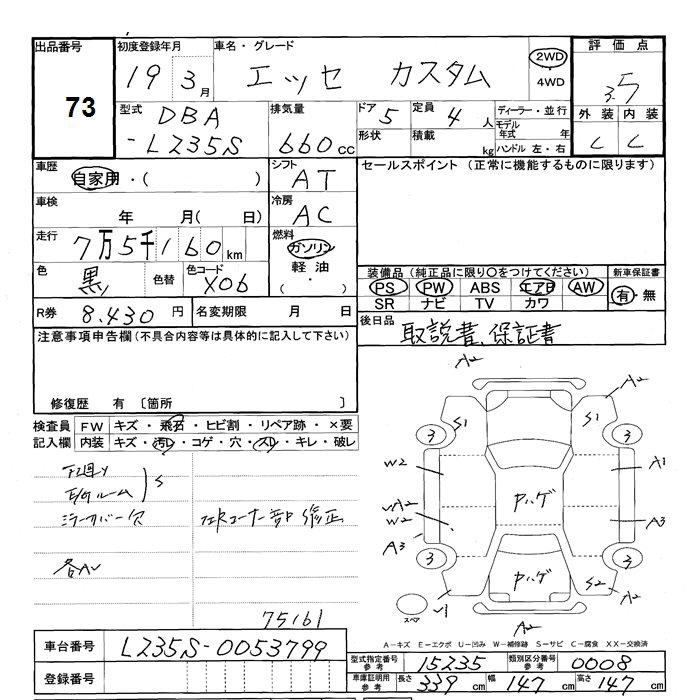 出品番号 73
初度登録年月 19 3月
車名・グレード エッセ カスタム
2WD・4WD
評価点 3.5
型式 DBA-L235S
排気量 660cc
ドア 5
形状
定員 4人
積載 kg
ディーラー・並行
モデル年式 年
ハンドル 左・右
外装 C
内装 C
車歴 自家用・( )
シフト AT
セールスポイント (正常に機能するものに限ります)
車検 年 月( 日)
冷房 AC
走行 7万5千160km
燃料 ガソリン 軽油 ( ・ )
色 黒 色替
色コード X06
装備品 (純正品に限り○をつけてください)
PS PW ABS エアB AW
SR ナビ TV カワ
新車保証書 有・無
R券 8.430円
名変期限 月 日
後日品 取説書、保証書
注意事項申告欄 (不具合内容等は具体的に記入して下さい)
修復歴 有 〔箇所 〕
検査員記入欄
FW キズ・飛石・ヒビ割・リペア跡・×要
内装 キズ・汚レ・コゲ・穴・スレ・キレ・破レ
下廻り
E/gルーム S
ミラーカバー欠
各AU
75161
A2
S1
S1
A2
3
3
W2
A1
A2
W2
ハゲ
A3
A3
3
3
ハゲ
S2
A2
スペア
A2
A−キズ E−エクボ U−凹み W−補修跡 S−サビ C−腐食 XX−交換済
車台番号 L235S-0053799
登録番号
型式指定番号 参考 15235
類別区分番号 参考 0008
車庫証明用 参考 長さ 339cm 幅 147cm 高さ 147cm